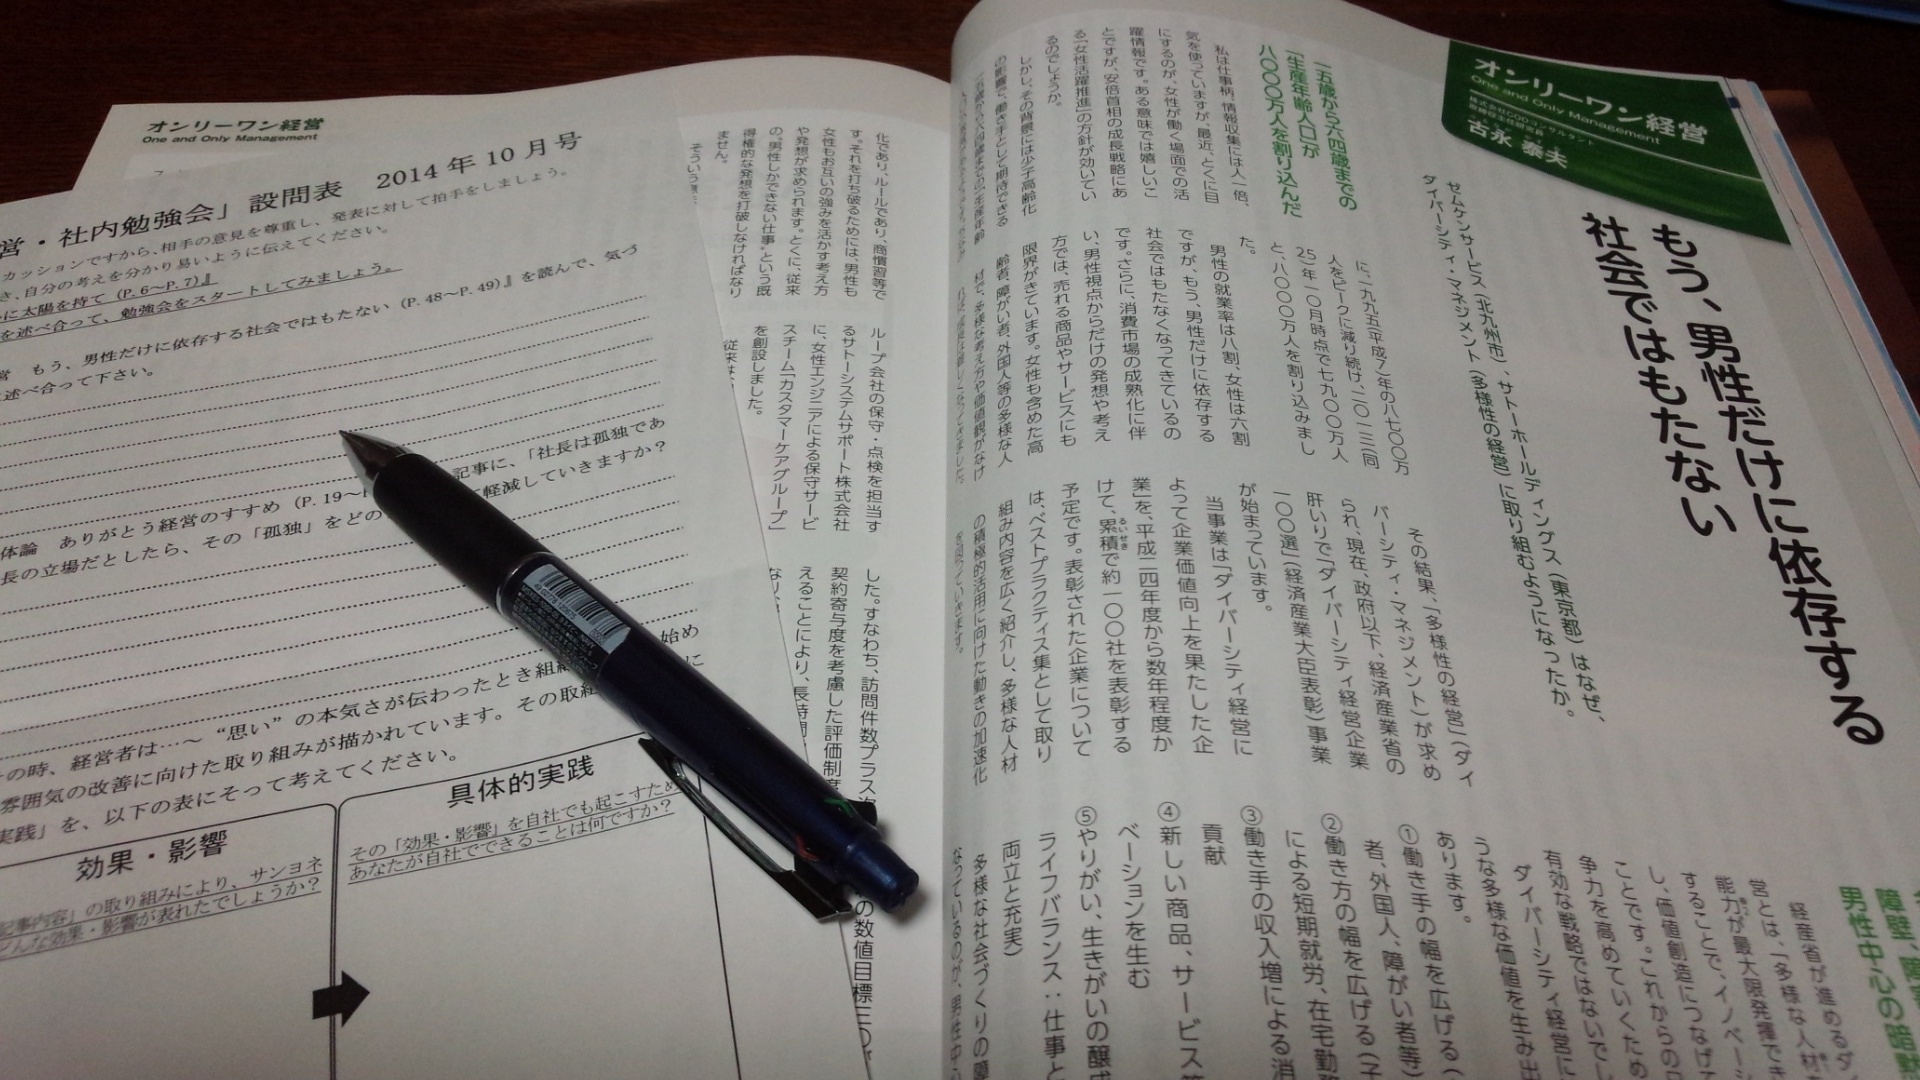 オンリーワン経営
One and Only Management
株式会社GODコンサルタント
古永 泰夫
もう、男性だけに依存する
社会ではもたない
ゼムケンサービス（北九州市）、サトーホールディングス（東京都）はなぜ、
ダイバーシティ・マネジメント（多様性の経営）に取り組むようになったか。
一五歳から六四歳までの
「生産年齢人口」が
八〇〇〇万人を割り込んだ
私は仕事柄、情報収集には人一倍、
気を使っていますが、最近、とくに目
にするのが、女性が働く場面での活
躍情報です。ある意味では嬉しいこ
とですが、安倍首相の成長戦略にあ
る「女性活躍推進」の方針が効いてい
るのでしょうか。
しかし、その背景には少子高齢化
の影響で、働き手として期待できる
に、一九九五（平成7）年の八七〇〇万
人をピークに減り続け、二〇一三（同
25）年一〇月時点で七九〇〇万人
と、八〇〇〇万人を割り込みまし
た。
男性の就業率は八割、女性は六割
ですが、もう、男性だけに依存する
社会ではもたなくなってきているの
です。さらに、消費市場の成熟化に伴
い、男性視点からだけの発想や考え
方では、売れる商品やサービスにも
限界がきています。女性も含めた高
齢者、障がい者、外国人等の多様な人
材で、多様な考え方や価値観がなけ
その結果、「多様性の経営」（ダイ
バーシティ・マネジメント）が求め
られ、現在、政府以下、経済産業省の
肝いりで「ダイバーシティ経営企業
一〇〇選」（経済産業大臣表彰）事業
が始まっています。
当事業は「ダイバーシティ経営に
よって企業価値向上を果たした企
業」を、平成二四年度から数年程度か
けて、累積で約一〇〇社を表彰する
るいせき
予定です。表彰された企業について
は、ベストプラクティス集として取り
組み内容を広く紹介し、多様な人材
の積極的活用に向けた動きの加速化
を図っていきます。
障壁、障害
男性中心の暗黙
経産省が進めるダ
営とは、「多様な人材
能力が最大限発揮でき
することで、イノベーシ
し、価値創造につなげ
ことです。これからの
争力を高めていくため
有効な戦略ではないでし
ダイバーシティ経営に
うな多様な価値を生み出
あります。
①働き手の幅を広げる（
者、外国人、障がい者等）
②働き方の幅を広げる（子
による短期就労、在宅勤務
③働き手の収入増による消
貢献
④新しい商品、サービス等
ベーションを生む
⑤やりがい、生きがいの醸成
ライフバランス：仕事と
両立と充実）
多様な社会づくりの障
なっているのが、男性中心
化であり、ルールであり、商慣習等で
す。それを打ち破るためには、男性も
女性もお互いの強みを活かす考え方
や発想が求められます。とくに、従来
の〝男性しかできない仕事〟という既
得権的な発想を打破しなければなり
ません。
ループ会社の保守・点検を担当す
るサトーシステムサポート株式会社
に、女性エンジニアによる保守サービ
スチーム「カスタマーケアグループ」
を創設しました。
した。すなわち、訪問件数プラス
契約寄与度を考慮した評価制度
えることにより、長時間
の数値目標三〇
オンリーワン経営
One and Only Management
営・社内勉強会」 設問表　2014年10月号
カッションですから、相手の意見を尊重し、発表に対して拍手をしましょう。
き、自分の考えを分かり易いように伝えてください。
に太陽を持て（P.6～P.7）』
を述べ合って、勉強会をスタートしてみましょう。
営　もう、男性だけに依存する社会ではもたない（P.48～P.49）』を読んで、気づ
述べ合って下さい。
体論　ありがとう経営のすすめ（P.19～
記事に、「社長は孤独であ
長の立場だとしたら、その「孤独」をどの
軽減していきますか？
の時、経営者は…～“思い”の本気さが伝わったとき組
始め
雰囲気の改善に向けた取り組みが描かれています。その取組
に
実践」を、以下の表にそって考えてください。
効果・影響
記事内容」の取り組みにより、サンヨネ
どんな効果・影響が表れたでしょうか？
具体的実践
その「効果・影響」を自社でも起こすため
あなたが自社でできることは何ですか？